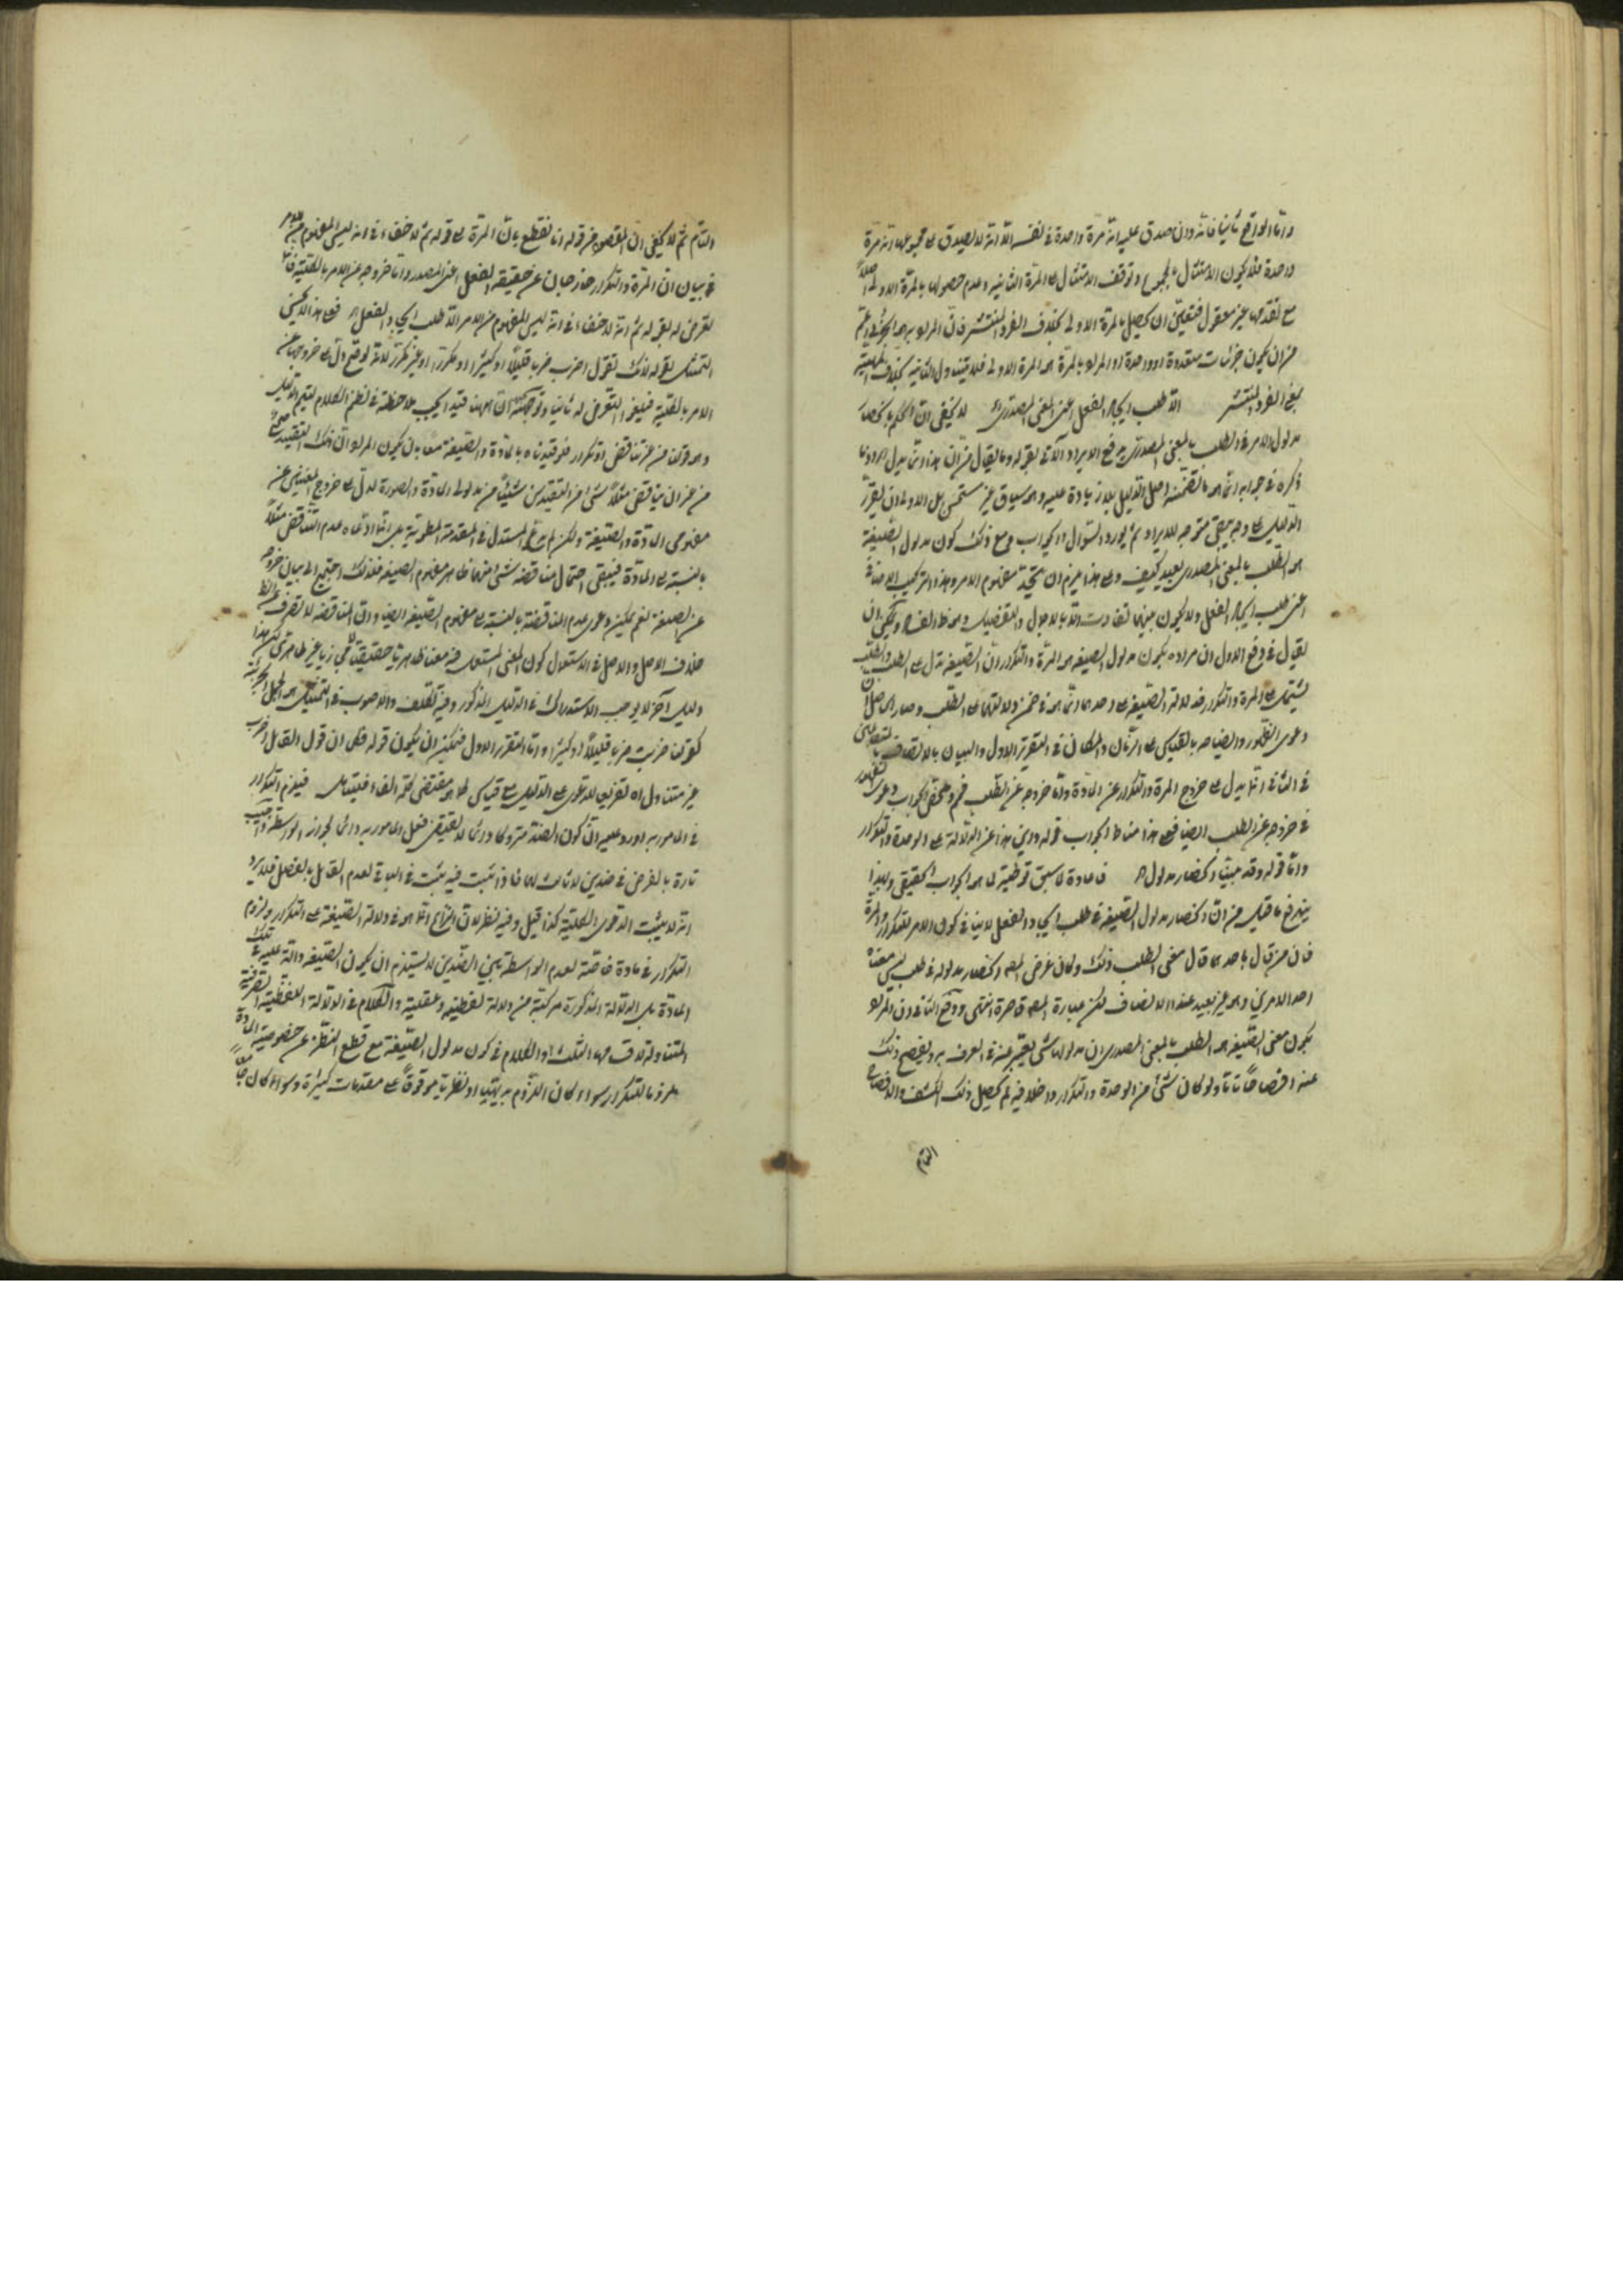 واما الواقع ثانيا فانه وان صدق عليه انه مرة واحدة في نفسه الا انه لا يصدق على مجموعهما انه مرة
واحدة فلا يكون الامتثال بالمجموع وتوقف الامتثال على المرة الثانية وعدم حصولها بالمرة الاولى اصلاً
مع تقدمها غير معقول فتعين ان يحصل بالمرة الاولى بخلاف الفرد المنتشر فان المراد به
من ان يكون جزئيات متعددة او واحدة او المراد بالمرة هو المرة الاولى فلا يتناول الثانية بخلاف الماهية
بمعنى الفرد المنتشر الا طلب ايجاد الفعل اعنى المعنى المصدرى لا يخفى ان الحكم بانحصار
مدلول الامر في الطلب بالمعنى المصدرى يدفع الايراد الآتى بقوله وما يقال من ان هذا انما يدل
ذكره في جوابه انما هو ما تضمنه اصل الدليل بلا زيادة عليه وهو سياق غير مستحسن بل الاولى ان يقرر
الدليل على وجه يبقى متوجه للايراد ثم يورد السؤال والجواب ومع ذلك كون مدلول الصيغة
هو الطلب بالمعنى المصدرى بعيد كيف وعلى هذا يلزم ان يتحد مفهوم الامر وهذا التركيب الاضافى
اعنى طلب ايجاد الفعل ولا يكون بينهما تفاوت الا بالاجمال والتفصيل وهو ظاهر الفساد ويمكن ان
يقال في دفع الاول ان مراده بكون مدلول الصيغة هو المرة والتكرار ان الصيغة تدل على الطلب والطلب
يشتمل على المرة والتكرار فدلالة الصيغة على احدهما انما هو في ضمن دلالتها على الطلب وصار الحاصل ان
دعوى الظهور والضياحه بالقياس على الزمان والمكان في التقرير الاول والبيان بالاتصاف
في الثاني انما يدل على خروج المرة والتكرار عن المادة واما خروجه عن الطلب فم وملخص الجواب دعوى
في خروجه عن الطلب ايضا فعلى هذا مناط الجواب قوله واين هذا عن الدلالة على الوحدة والتكرار
واما قوله وقد بينا انحصار مدلول اه فاعادة لما سبق توطئة لما هو الجواب الحقيقى وبهذا
يندفع ما قيل من ان انحصار مدلول الصيغة في طلب ايجاد الفعل لا ينافى كون الامر للتكرار والمرة
فان من قال باحدهما قال معنى الطلب ذلك وكان غرض المص انحصار مدلوله في طلب ليس معناه
احد الامرين وهو غير بعيد عند الانصاف لكن عبارة المص قاصرة انتهى ووقع الثانى ان المراد
بكون معنى الصيغة هو الطلب بالمعنى المصدرى ان مدلولها شئ يعبر عنه في العرف به ويفصح ذلك
عنه افصاحاً تاما ولو كان شئ من الوحدة والتكرار داخلا فيه لم يحصل ذلك الكشف والافصاح
التام
التام ثم لا يخفى ان المقصود من قوله انا نقطع بان المرة الى قوله ثم لا خفاء في انه ليس المفهوم من الامر
في بيان ان المرة والتكرار خارجان عن حقيقة الفعل اعنى المصدر واما خروجه عن الامر بالكلية فانما
تعرض له بقوله ثم انه لا خفاء في انه ليس المفهوم من الامر الا طلب ايجاد الفعل اه فعلى هذا لا يحسن
التمثيل بقوله لانك تقول اضرب ضربا قليلاً او كثيرا او مكررا او غير مكرر لانه لو صح دل على خروجها عن
الامر بالكلية فيلغو التعرض له ثانيا وتوجيهه ان ههنا قيد يجب ملاحظته في نظم الكلام ليتم الدليل
وهو قولنا من غير تناقض او تكرار فلو قيدناه بالمادة والصيغة معا بان يكون المراد ان ذلك التقييد صح
من غير ان يناقض مثلاً شئ من التقيدين شيئاً من مدلولى المادة والصورة لدل على خروج المعنيين عن
مفهومى المادة والصيغة ولكن لم يدع المستدل في المقدمة المطوية بل انما ادعاه عدم التناقض مثلاً
بالنسبة الى المادة فيبقى احتمال مناقضه شئ منهما لظاهر مفهوم الصيغة فلذلك احتيج الى بيان خروجه
عن الصيغة نعم يمكن دعوى عدم المناقضة بالنسبة الى مفهوم الصيغة ايضا وان المناقضه لا تصرف
خلاف الاصل والاصل في الاستعمال كون المعنى المستعمل فيه معنا ظاهريا حقيقيا لا مجازيا غير ظاهرى لكن هذا
دليل آخر لا يوجب الاستدراك في الدليل المذكور وفيه تكلف والاصوب في التمثيل هو الجمل الخبرية
كقولنا ضربت ضربا قليلاً او كثيرا واما التقرير الاول فيمكن ان يكون قوله فكل ان قول القائل اضرب
غير متناول اه تفريعا للدعوى على الدليل على قياس ما هو مقتضى كلمة الفاء فيتامل فيلزم التكرار
في المامور به اورد عليه ان كون الضد متروكا دائما لا يقتضى فعل المامور به دائما لجواز الواسطة واجيب
تارة بالفرض في ضدين لا ثالث لهما فاذا ثبت فيه ثبت في الباقى لعدم القائل بالفصل فلا يرد
انه لا يثبت الدعوى الكلية كذا قيل وفيه نظر لان النزاع انما هو في دلالة الصيغة على التكرار ولزوم
التكرار في مادة خاصة لعدم الواسطة بين الضدين لا يستلزم ان يكون الصيغة دالة عليه في تلك
المادة بل الدلالة المذكورة مركبة من دلالة لفظية وعقلية والكلام في الدلالة اللفظية الصرفة
المتناولة لاقسامها الثلث او الكلام في كون مدلول الصيغة مع قطع النظر عن خصوصية المادة
ملزوما للتكرار سواء كان اللزوم بديهيا او نظريا موقوفاً على مقدمات كثيرة وسواء كان